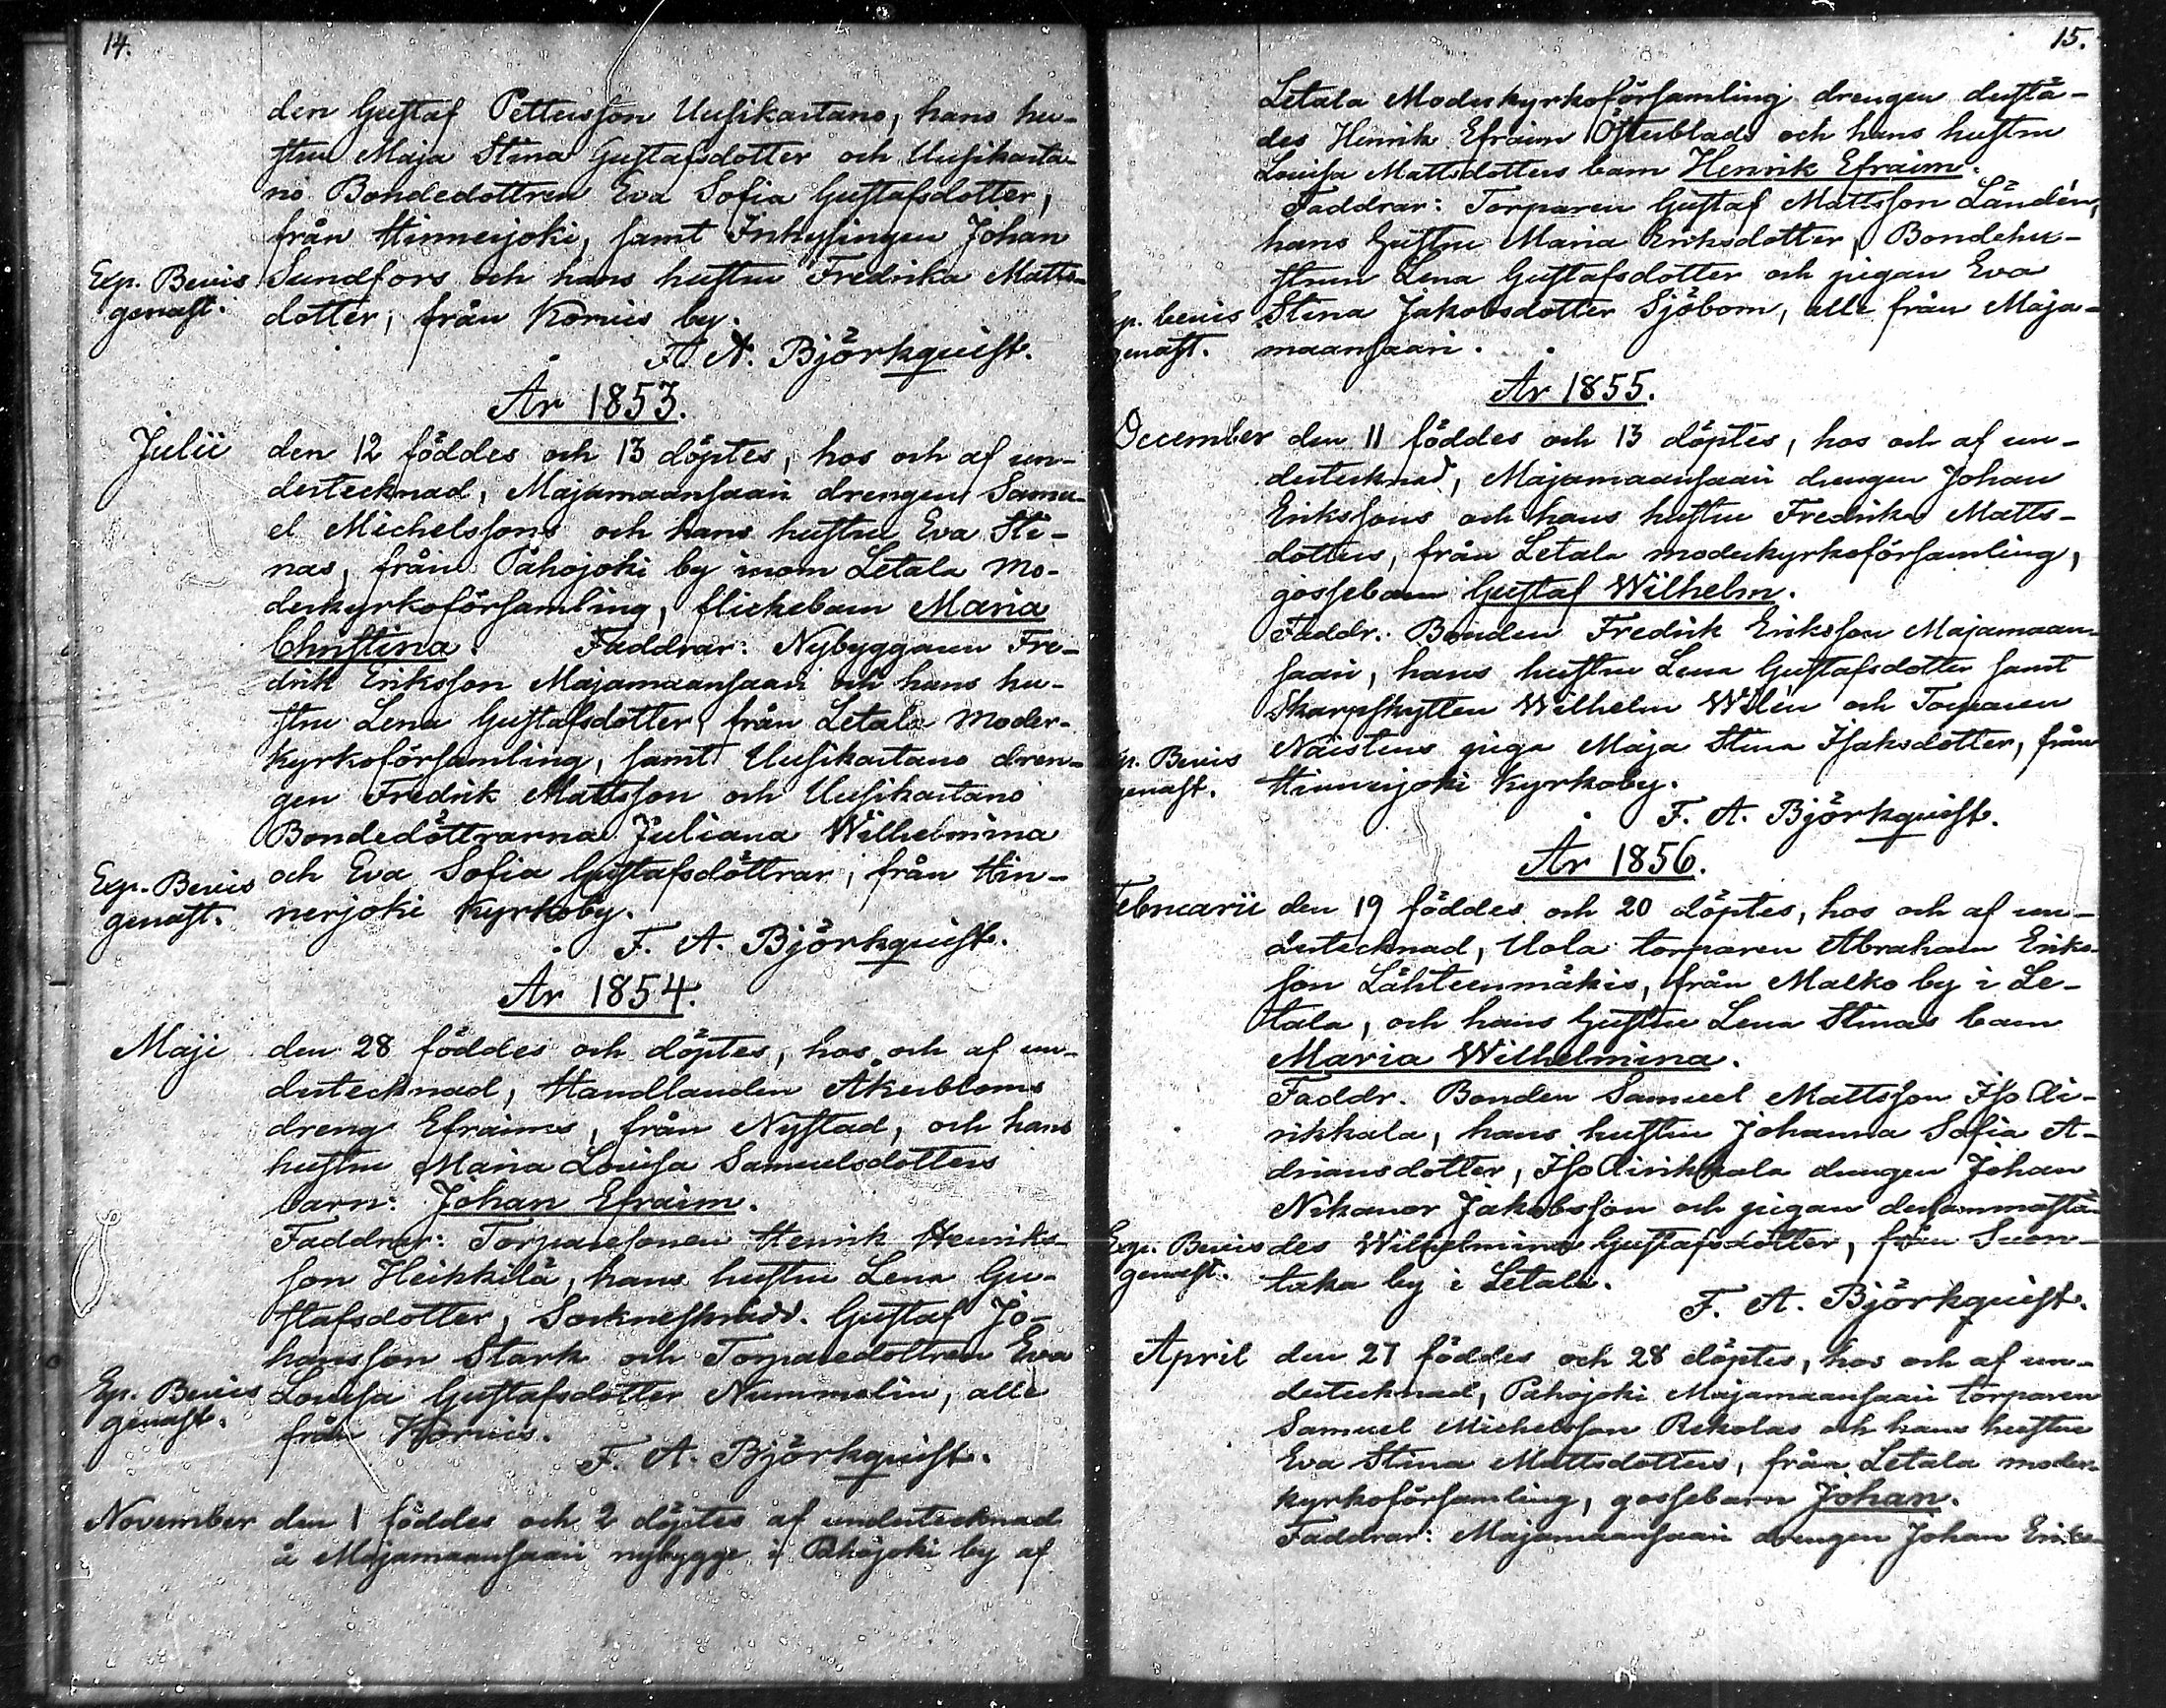 14.
den Gustaf Pettersson Uusikartano, hans hu-
stru Maja Stina Gustafsdotter och Uusikarta-
no Bondedottren Eva Sofia Gustafsdotter,
från Hinnerjoki, samt Inhysingen Johan
Exp. Bevis Sundfors och hans hustru Fredrika Matts-
genast. dotter, från Korvis by.
F. A. Björkquist.
År 1853.
Julii den 12 föddes och 13 döptes, hos och af un-
dertecknad, Majamaansaari drengen Samu-
el Michelssons och hans hustru Eva Sti-
nas, från Pahojoki by inom Letala Mo-
derkyrkoförsamling, flickebarn Maria
Christina. Faddrar: Nybyggaren Fre-
drik Eriksson Majamaansaari och hans hu-
stru Lena Gustafsdotter, från Letala Moder-
kyrkoförsamling, samt Uusikartano dren-
gen Fredrik Mattsson och Uusikartano
Bondedöttrarna Juliana Wilhelmina
Exp. Bevis och Eva Sofia Gustafsdöttrar, från Hin-
genast. nerjoki Kyrkoby.
F. A. Björkquist.
År 1854.
Maji den 28 föddes och döptes, hos och af un-
dertecknad, Handlanden Åkerbloms
dreng Efraims, från Nystad, och hans
hustru Maria Lovisa Samuelsdotters
barn: Johan Efraim.
Faddrar: Torparesonen Henrik Henriks-
son Heikkilä, hans hustru Lena Gu-
stafsdotter, Sockneskradd. Gustaf Jo-
hansson Stark och Torparedottren Eva
Exp. Bevis Lovisa Gustafsdotter Nummelin, alle
genast. från Korvis.
F. A. Björkquist.
November den 1 föddes och 2 döptes af undertecknad
å Majamaansaari nybygge i Pahojoki by af
15.
Letala Moderkyrkoförsamling drengen derstä-
des Henrik Efraim Österblads och hans hustru
Lovisa Mattsdotters barn Henrik Efraim.
Faddrar: Torparen Gustaf Mattsson Ländén,
hans hustru Maria Eriksdotter, Bondehu-
strun Lena Gustafsdotter och pigan Eva
Exp. bevis Stina Jakobsdotter Sjöbom, alle från Maja-
genast. maansaari.
År 1855.
December den 11 föddes och 13 döptes, hos och af un-
dertecknad, Majamaansaari drengen Johan
Erikssons och hans hustru Fredrika Matts-
dotters, från Letala moderkyrkoförsamling,
gossebarn Gustaf Wilhelm.
Faddr. Bonden Fredrik Eriksson Majamaan-
saari, hans hustru Lena Gustafsdotter samt
Skarpskytten Wilhelm Wilén och Torparen
Exp. Bevis Naistens piga Maja Stina Isaksdotter, från
genast. Hinnerjoki Kyrkoby.
F. A. Björkquist.
År 1856.
Februarii den 19 föddes och 20 döptes, hos och af un-
dertecknad, Uola torparen Abraham Eriks-
son Lähteenmäkis, från Malko by i Le-
tala, och hans hustru Lena Stinas barn
Maria Wilhelmina.
Faddr. Bonden Samuel Mattsson Iso Ai-
rikkala, hans hustru Johanna Sofia A-
driansdotter, Iso Airikkala drengen Johan
Nikanor Jakobsson och pigan dersammastä-
Exp. Bevis des Wilhelmina Gustafsdotter, från Suon-
genast. taka by i Letala.
F. A. Björkquist.
April den 27 föddes och 28 döptes, hos och af un-
dertecknad, Pahojoki Majamaansaari torparen
Samuel Michelsson Rekolas och hans hustru
Eva Stina Mattsdotters, från Letala moder-
kyrkoförsamling, gossebarn Johan.
Faddrar: Majamaansaari drengen Johan Eriks-